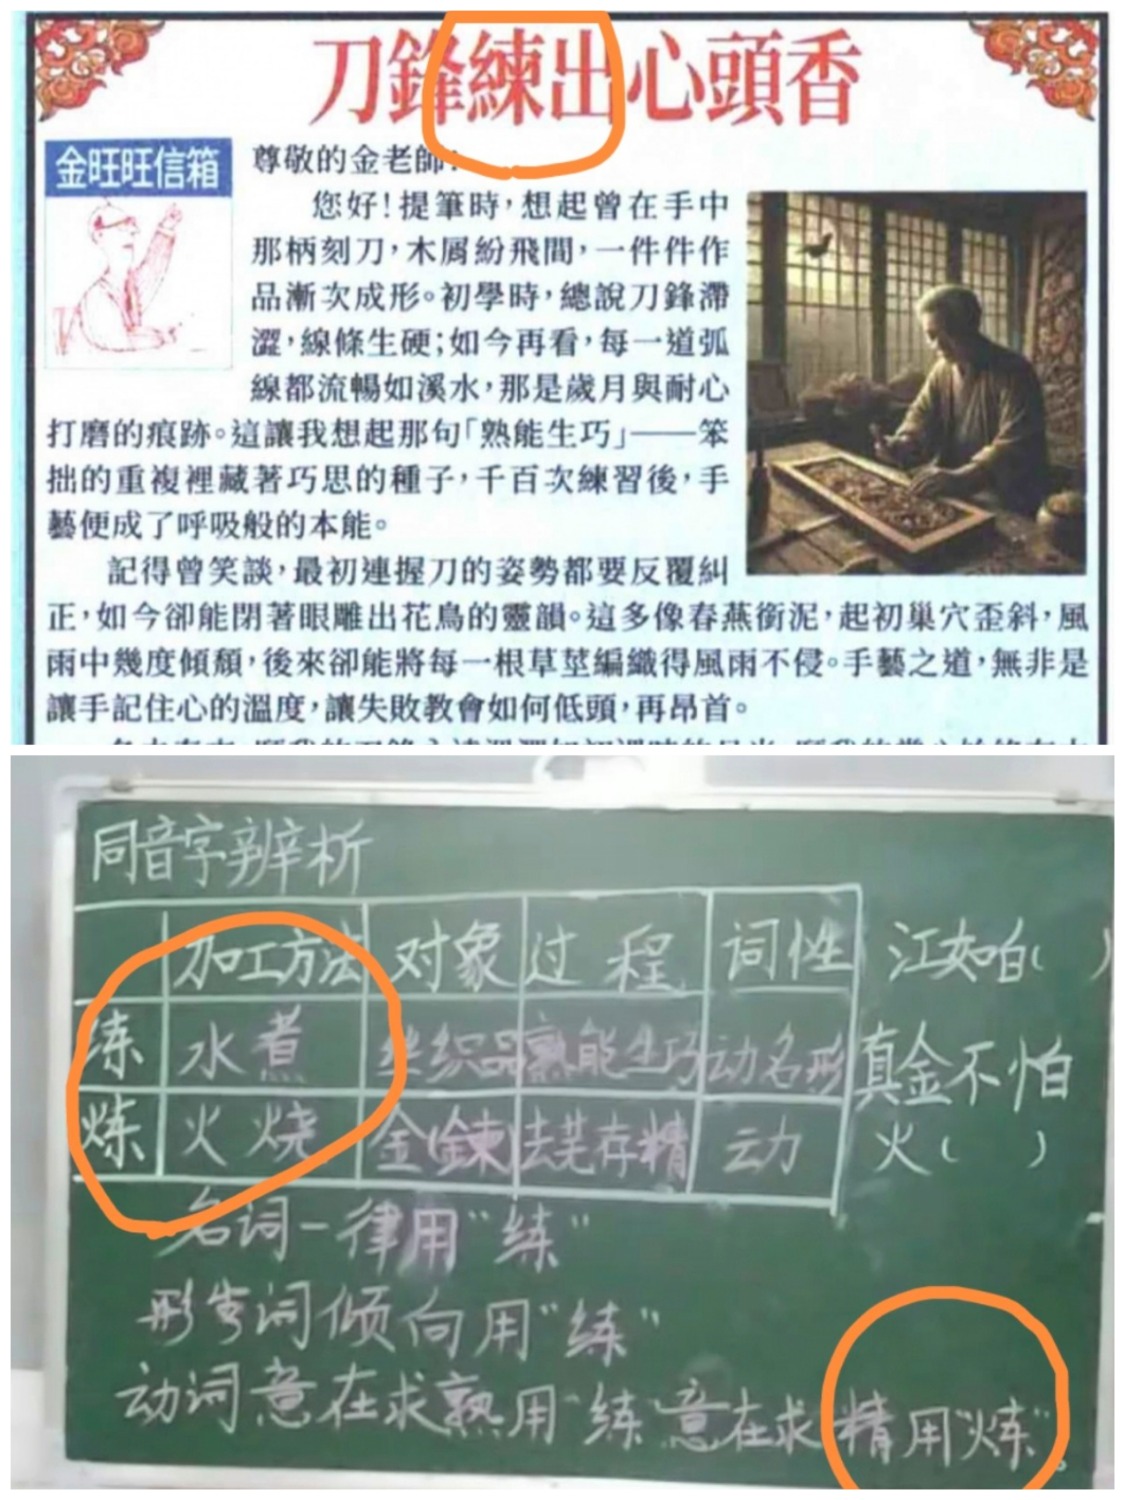 刀鋒練出心頭香
金旺旺信箱
尊敬的金老師：
您好！提筆時，想起曾在手中
那柄刻刀，木屑紛飛間，一件件作
品漸次成形。初學時，總說刀鋒滯
澀，線條生硬；如今再看，每一道弧
線都流暢如溪水，那是歲月與耐心
打磨的痕跡。這讓我想起那句「熟能生巧」——笨
拙的重複裡藏著巧思的種子，千百次練習後，手
藝便成了呼吸般的本能。
記得曾笑談，最初連握刀的姿勢都要反覆糾
正，如今卻能閉著眼雕出花鳥的靈韻。這多像春燕銜泥，起初巢穴歪斜，風
雨中幾度傾頹，後來卻能將每一根草莖編織得風雨不侵。手藝之道，無非是
讓手記住心的溫度，讓失敗教會如何低頭，再昂首。
同音字辨析
加工方法 对象 过程 词性
练 水煮 丝织品 熟能生巧 动名形
炼 火烧 金(鍊 去芜存精 动
江如白( )
真金不怕
火( )
名词一律用"练"
形容词倾向用"练"
动词意在求熟用"练"意在求精用"炼"。